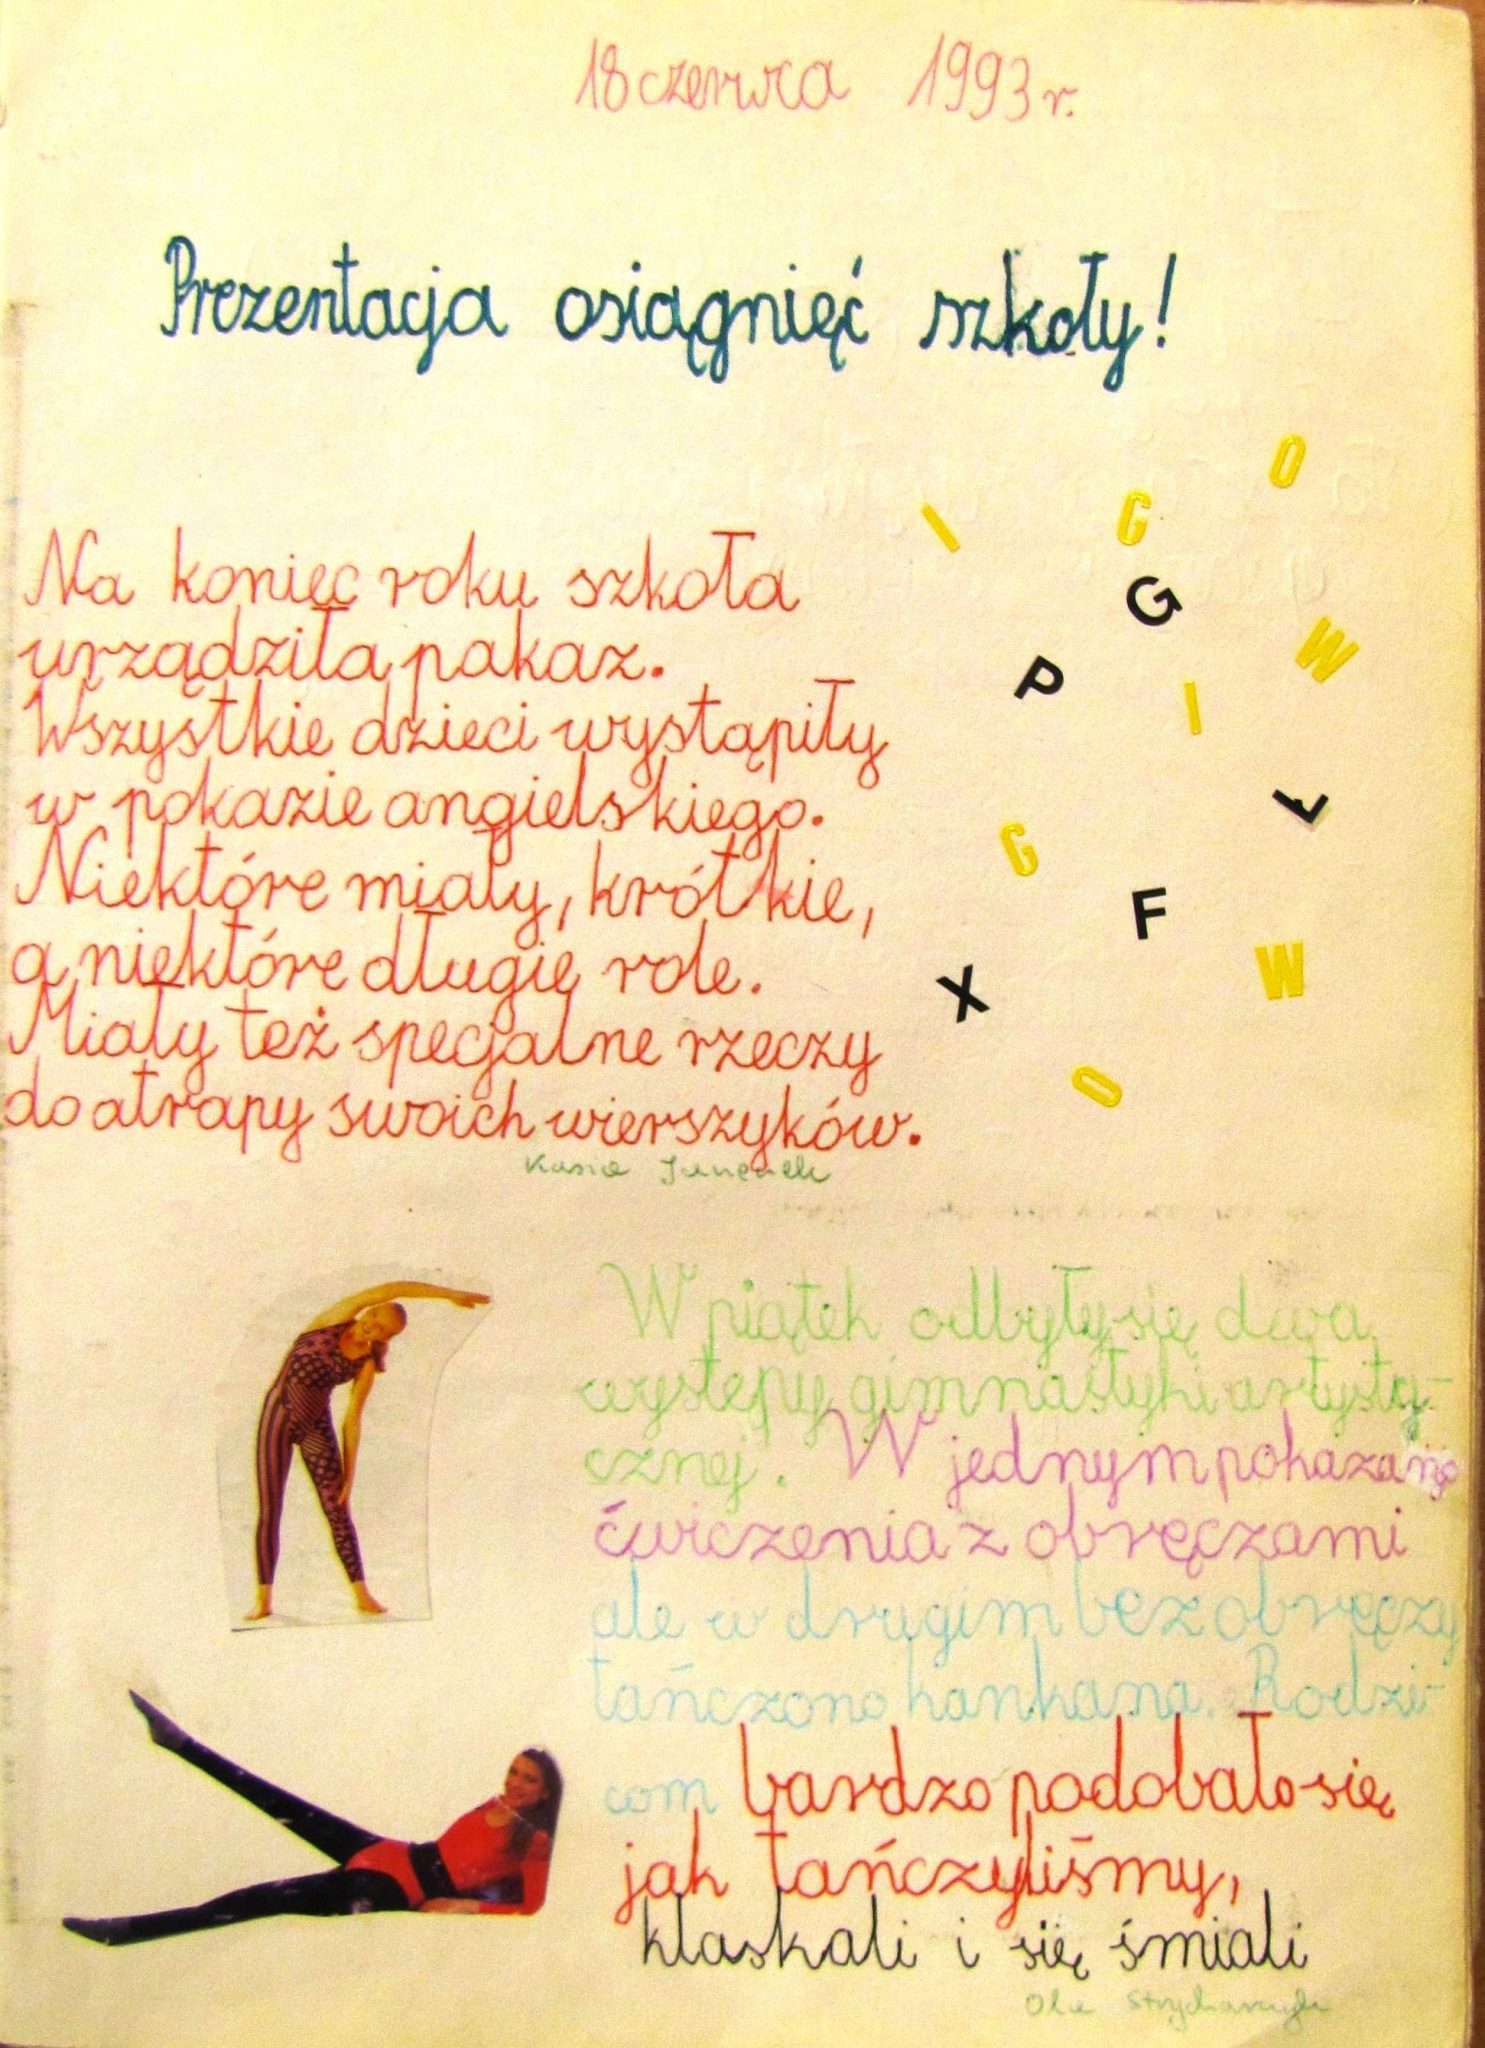 18 czerwca 1993 r.
Prezentacja osiągnięć szkoły!
Na koniec roku szkoła
urządziła pakaz.
Wszystkie dzieci wystąpiły
w pokazie angielskiego.
Niektóre miały, krótkie,
a niektóre długie role.
Miały też specjalne rzeczy
do atrapy swoich wierszyków.
Kasia
I G O
G
P W
I
L
G
F
X W
O
W piątek odbyły się dwa
występy gimnastyki artysty-
cznej. W jednym pokazano
ćwiczenia z obręczami
ale w drugim bez obręczy
tańczono kankana. Rodzi-
com bardzo podobało się
jak tańczyliśmy,
klaskali i się śmiali
Ola